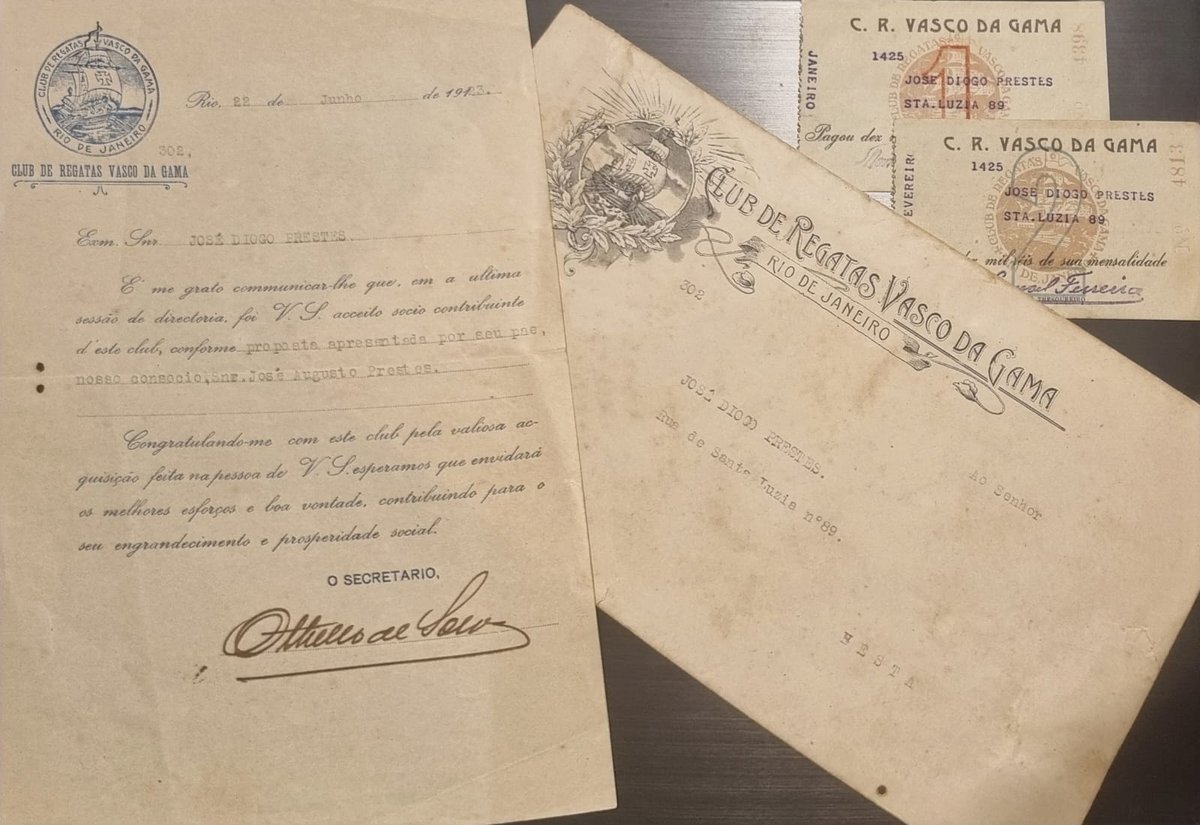 CLUB DE REGATAS VASCO DA GAMA
RIO DE JANEIRO
302,
CLUB DE REGATAS VASCO DA GAMA
Rio, 22 de Junho de 1923.
Exm. Snr. JOSÉ DIOGO PRESTES.
E' me grato communicar-lhe que, em a ultima
sessão de directoria, foi V. S. acceito socio contribuinte
d'este club, conforme proposta apresentada por seu pae,
nosso consocio, Snr. José Augusto Prestes.
Congratulando-me com este club pela valiosa ac-
quisição feita na pessoa de V. S. esperamos que envidará
os melhores esforços e boa vontade, contribuindo para o
seu engrandecimento e prosperidade social.
O SECRETARIO,
CLUB DE REGATAS VASCO DA GAMA
RIO DE JANEIRO
302
Ao Senhor
JOSÉ DIOGO PRESTES.
Rua de Santa Luzia nº89.
NESTA
C. R. VASCO DA GAMA
JANEIRO
1425
1
JOSE DIOGO PRESTES
STA. LUZIA 89
4398
Pagou dez
C. R. VASCO DA GAMA
EVEREIR
1425
2
JOSE DIOGO PRESTES
STA. LUZIA 89
4813
mil réis de sua mensalidade
Ferreira